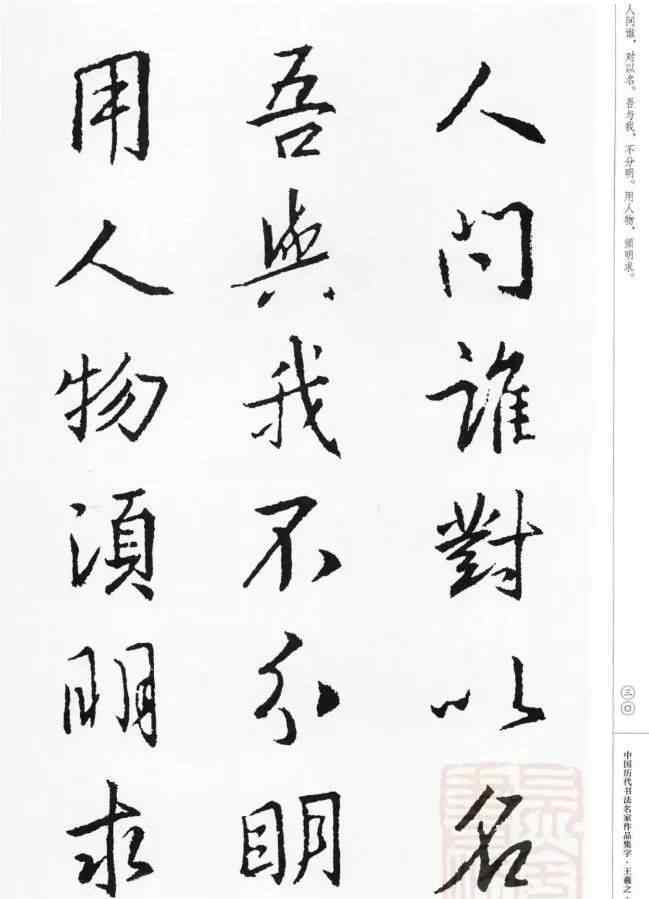 人問誰對以名
吾與我不分明
用人物須明求
人问谁，对以名。吾与我，不分明。用人物，须明求。
三〇
中国历代书法名家作品集字·王羲之